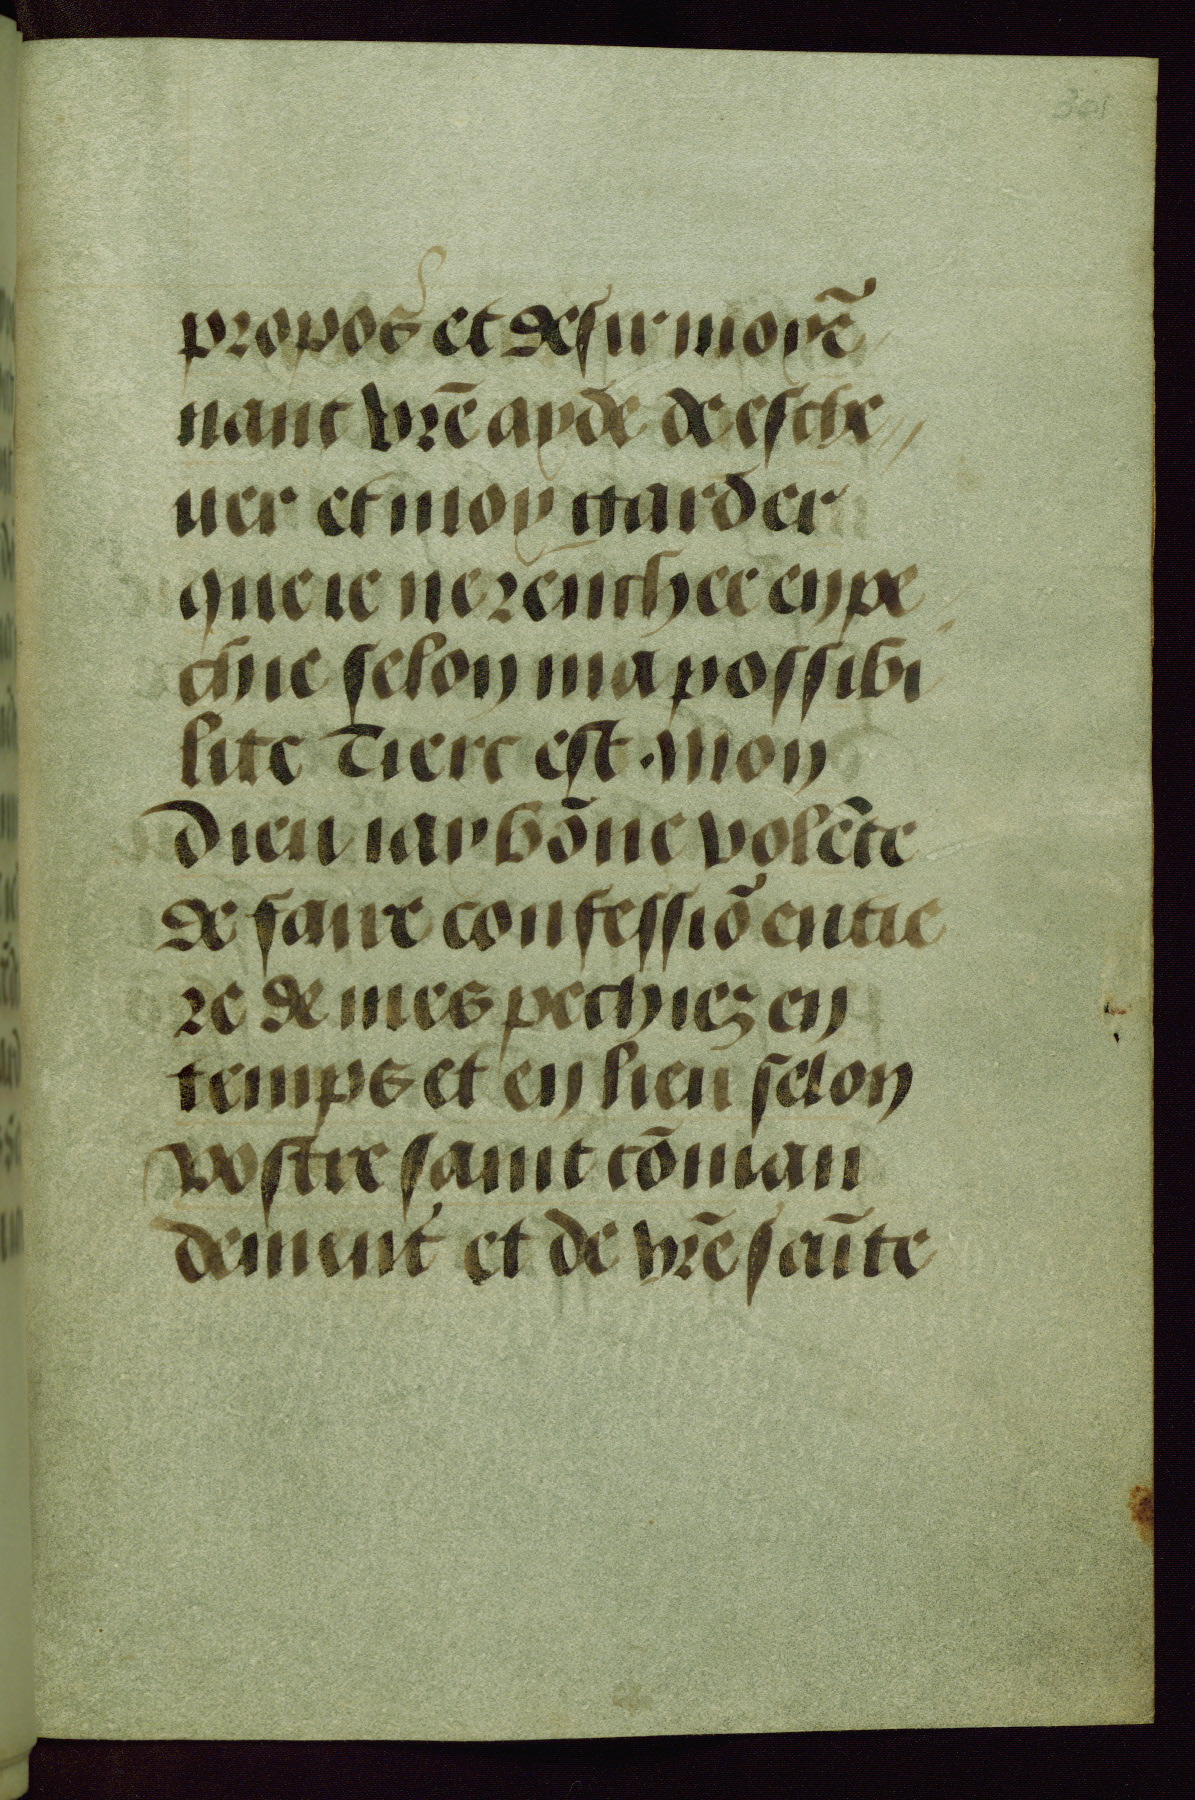 301
propos et desir moyē
nant vrē ayde de esche
uer et moy garder
que ie ne renchee en pe
chie selon ma possibi
lite Tierc est . mon
dieu iay bōne volēte
de faire confessiō entie
re de mes pechiez en
temps et en lieu selon
vostre saint cōman
dement et de vrē saīte